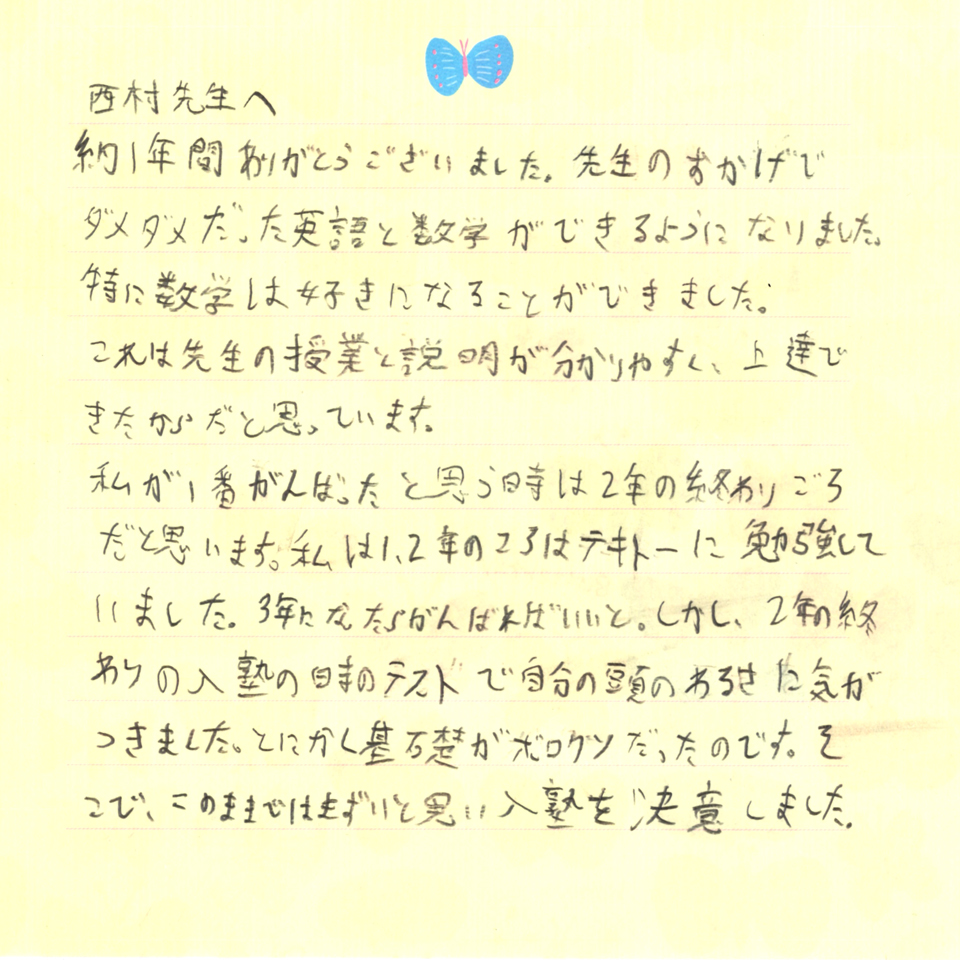 西村先生へ
約1年間ありがとうございました。先生のおかげで
ダメダメだった英語と数学ができるようになりました。
特に数学は好きになることができました。
これは先生の授業と説明が分かりやすく、上達で
きたからだと思っています。
私が1番がんばったと思う時は2年の終わりごろ
だと思います。私は1、2年のころはテキトーに勉強して
いました。3年になたらがんばればいいと。しかし、2年の終
わりの入塾の時のテストで自分の頭のわるさに気が
つきました。とにかく基礎がボロクソだったのです。そ
こで、このままではまずいと思い入塾を決意しました。